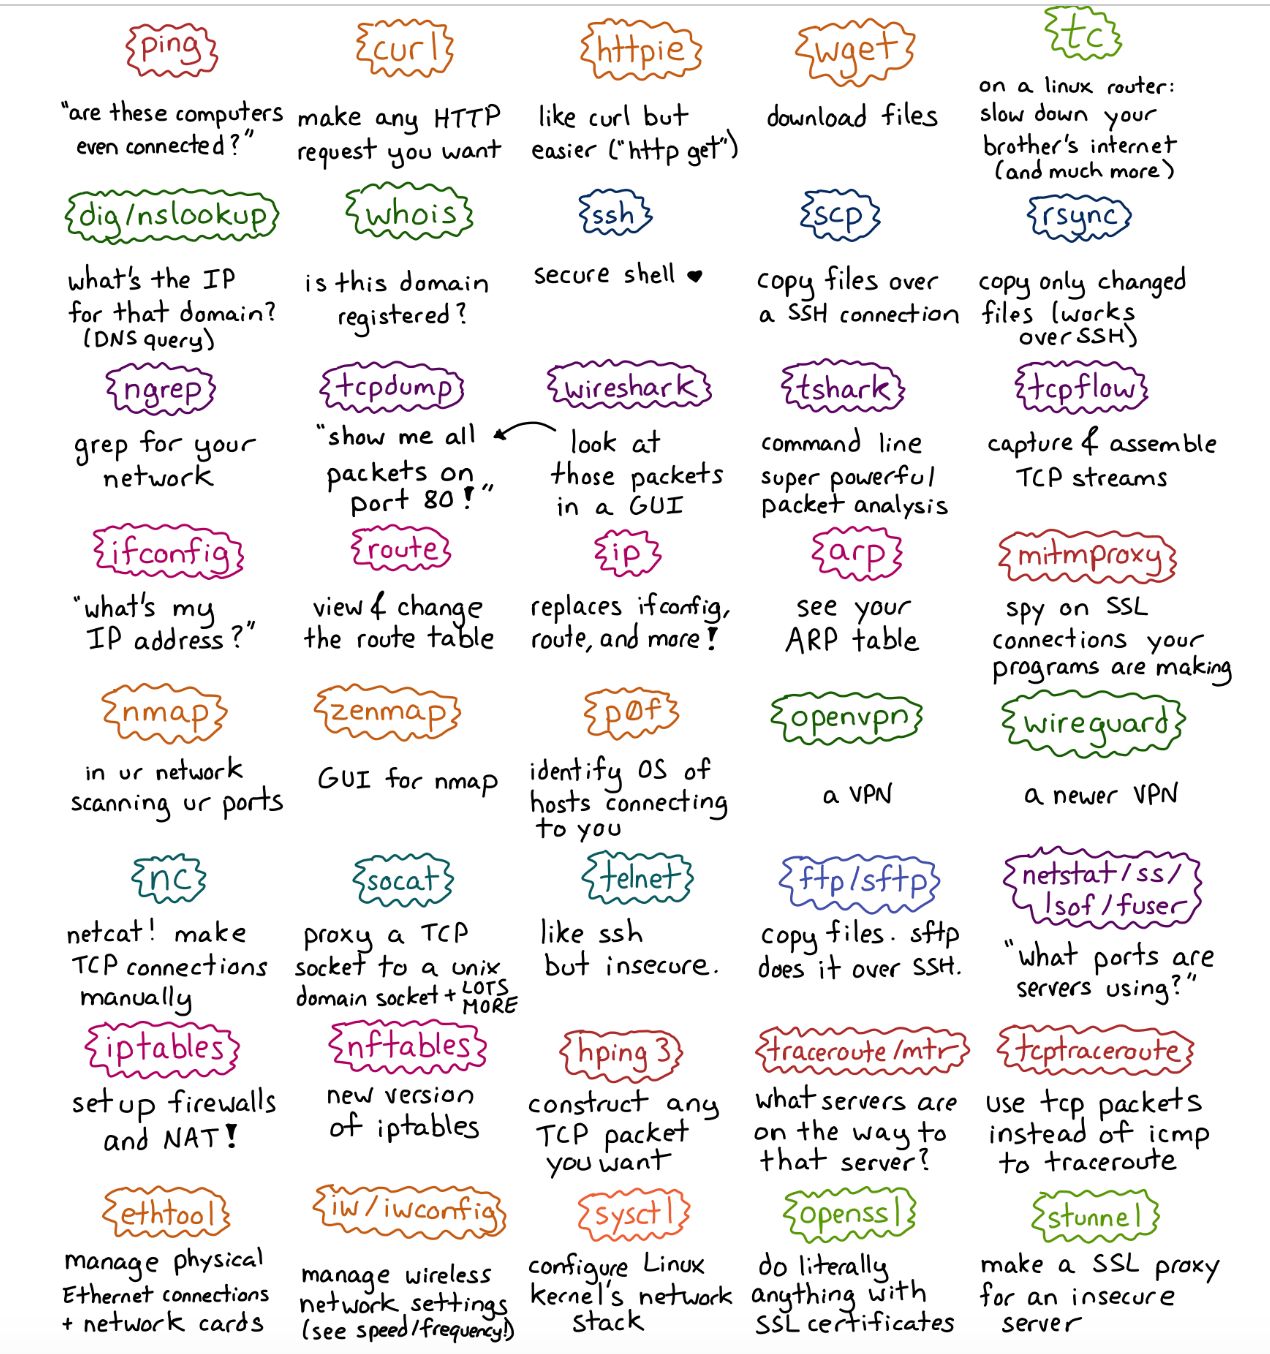 ping
"are these computers
even connected?"
curl
make any HTTP
request you want
httpie
like curl but
easier ("http get")
wget
download files
tc
on a linux router:
slow down your
brother's internet
(and much more)
dig/nslookup
what's the IP
for that domain?
(DNS query)
whois
is this domain
registered?
ssh
secure shell ♥
scp
copy files over
a SSH connection
rsync
copy only changed
files (works
over SSH)
ngrep
grep for your
network
tcpdump
"show me all
packets on
port 80!"
wireshark
look at
those packets
in a GUI
tshark
command line
super powerful
packet analysis
tcpflow
capture & assemble
TCP streams
ifconfig
"what's my
IP address?"
route
view & change
the route table
ip
replaces ifconfig,
route, and more!
arp
see your
ARP table
mitmproxy
spy on SSL
connections your
programs are making
nmap
in ur network
scanning ur ports
zenmap
GUI for nmap
p0f
identify OS of
hosts connecting
to you
openvpn
a VPN
wireguard
a newer VPN
nc
netcat! make
TCP connections
manually
socat
proxy a TCP
socket to a unix
domain socket + LOTS
MORE
telnet
like ssh
but insecure.
ftp/sftp
copy files. sftp
does it over SSH.
netstat/ss/
lsof/fuser
"what ports are
servers using?"
iptables
set up firewalls
and NAT!
nftables
new version
of iptables
hping3
construct any
TCP packet
you want
traceroute/mtr
what servers are
on the way to
that server?
tcptraceroute
use tcp packets
instead of icmp
to traceroute
ethtool
manage physical
Ethernet connections
+ network cards
iw/iwconfig
manage wireless
network settings
(see speed/frequency!)
sysctl
configure Linux
kernel's network
stack
openssl
do literally
anything with
SSL certificates
stunnel
make a SSL proxy
for an insecure
server